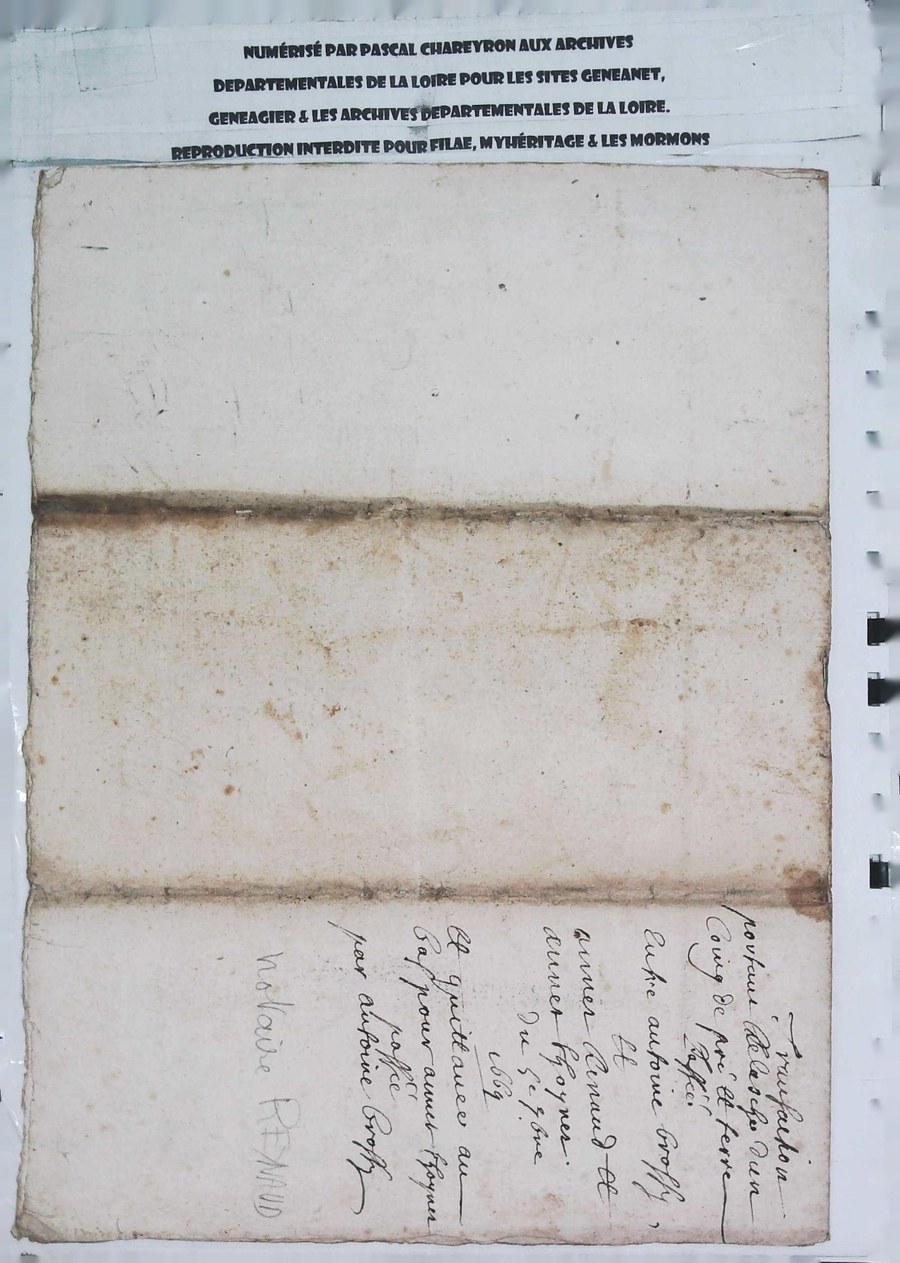 NUMÉRISÉ PAR PASCAL CHAREYRON AUX ARCHIVES
DEPARTEMENTALES DE LA LOIRE POUR LES SITES GENEANET,
GENEAGIER & LES ARCHIVES DEPARTEMENTALES DE LA LOIRE.
REPRODUCTION INTERDITE POUR FILAE, MYHÉRITAGE & LES MORMONS
Transaction
portant dun
Coing de pré et terre
passée
Entre antoine Crosse,
Et
annet Renaud Et
annet
du 5e 9bre
1669
Et quittance au
bas pour annet
passée
par antoine Crosse
Notaire RENAUD